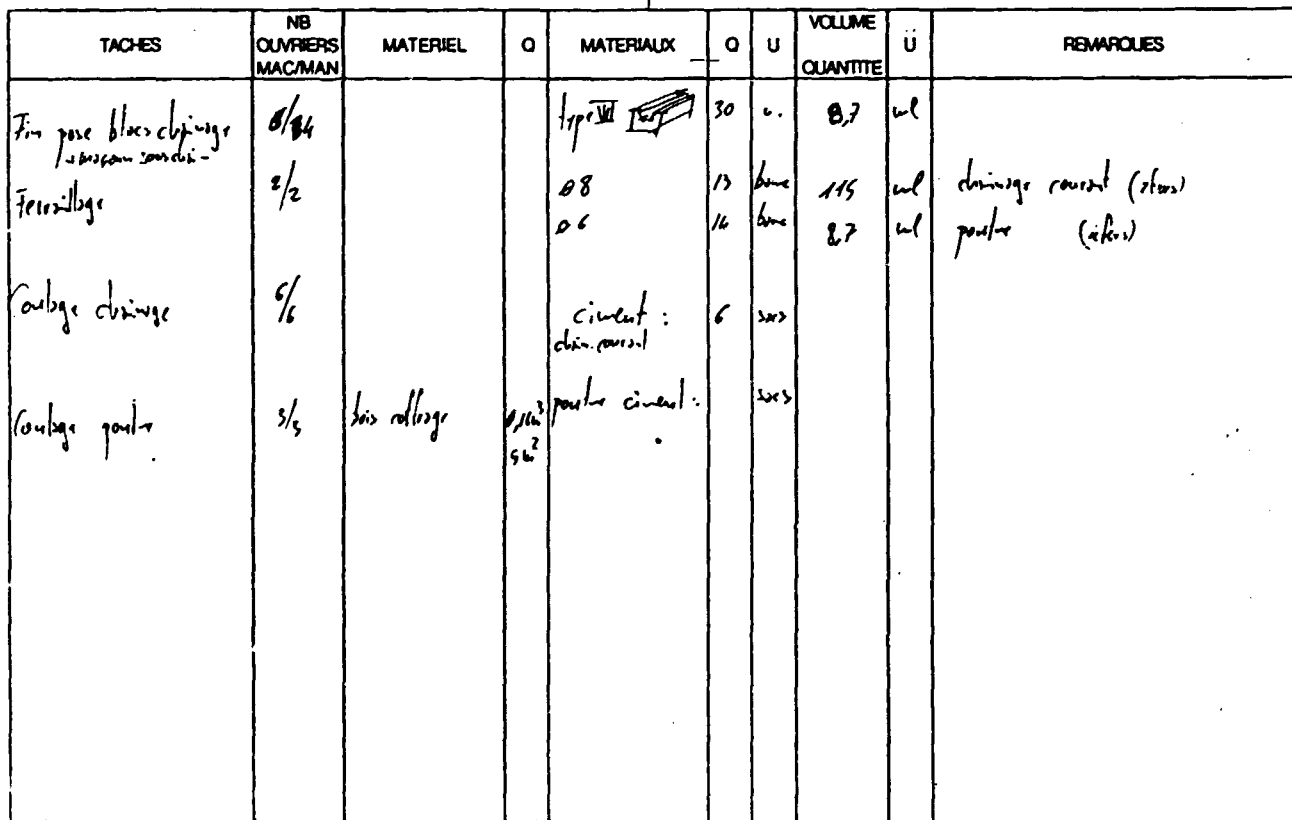 TACHES NB OUVRIERS MAC/MAN MATERIEL Q MATERIAUX Q U VOLUME QUANTITE U REMARQUES
Fin pose blocs chainage type VII 30 u. 8,7 ml
Ferraillage 2/2 ø 8 13 barre 115 ml chainage courant
ø 6 14 barre 8,7 ml poutre
Coulage chainage 6/6 ciment : 6 sacs
chain. courant
Coulage poutre bois coffrage poutre ciment : sacs